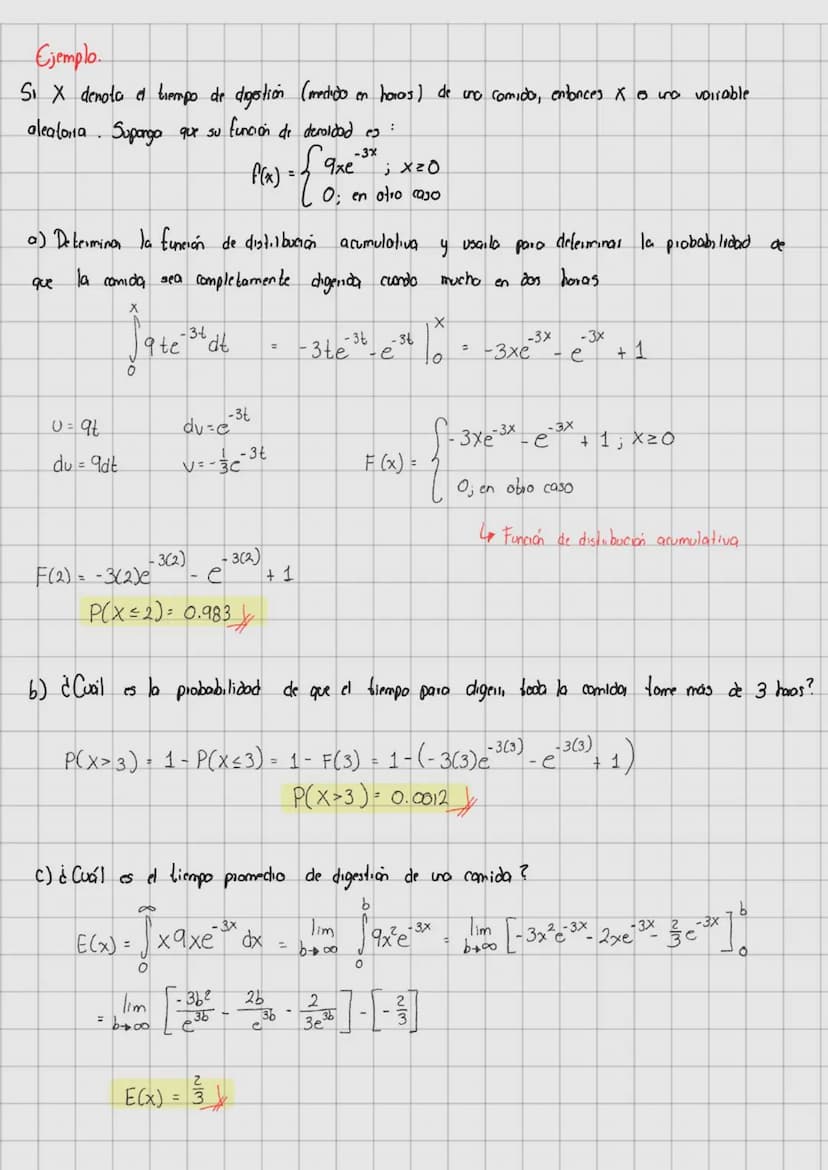 Ejemplo.
Si X denota el tiempo de digestión (medido en horas) de una comida, entonces X es una variable
aleatoria. Suponga que su función de densidad es:
f(x) = { 9xe^{-3x} ; x≥0
0; en otro caso
a) Determinar la función de distribución acumulativa y usarla para determinar la probabilidad de
que la comida sea completamente digerida cuando mucho en dos horas
∫_0^x 9te^{-3t} dt = -3te^{-3t} - e^{-3t} |_0^x = -3xe^{-3x} - e^{-3x} + 1
u = 9t dv = e^{-3t}
du = 9dt v = -1/3 e^{-3t}
F(x) = { -3xe^{-3x} - e^{-3x} + 1 ; x≥0
0; en otro caso
↳ Función de distribución acumulativa
F(2) = -3(2)e^{-3(2)} - e^{-3(2)} + 1
P(X≤2) = 0.983
b) ¿Cuál es la probabilidad de que el tiempo para digerir toda la comida, tome más de 3 horas?
P(X>3) = 1 - P(X≤3) = 1 - F(3) = 1 - (-3(3)e^{-3(3)} - e^{-3(3)} + 1)
P(X>3) = 0.0012
c) ¿Cuál es el tiempo promedio de digestión de una comida?
E(x) = ∫_0^∞ x9xe^{-3x} dx = lim_{b→∞} ∫_0^b 9x²e^{-3x} = lim_{b→∞} [-3x²e^{-3x} - 2xe^{-3x} - 2/3 e^{-3x}]_0^b
= lim_{b→∞} [-3b²/e^{3b} - 2b/e^{3b} - 2/3e^{3b}] - [-2/3]
E(x) = 2/3